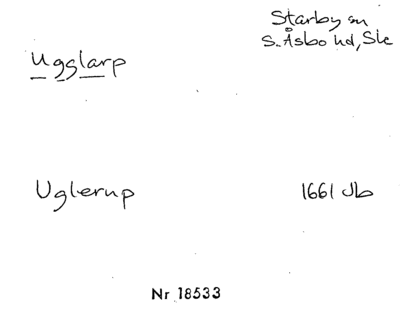 Starby sn
S. Åsbo hd, Sk
Ugglarp
Uglerup 1661 Jb
Nr 18533